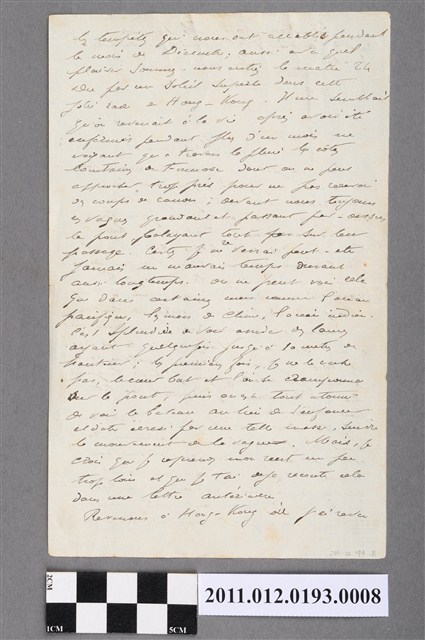 les tempêtes qui nous ont accablés pendant
le mois de Décembre, aussi avec quel
plaisir sommes-nous entrés le matin 24
Xbre par un soleil superbe dans cette
jolie rade de Hong-Kong. Il me semblait
qu'on revenait à la vie après avoir été
enfermés pendant plus d'un mois ne
voyant qu'à travers la pluie les côtes
lointaines de Formose dont on ne peut
approcher trop près pour ne pas recevoir
des coups de canon ; devant nous toujours
les vagues grondant et passant par-dessus
le pont balayant tout sur leur
passage. Certes je ne verrai peut-être
jamais un mauvais temps durant
aussi longtemps. On ne peut voir cela
que dans certaines mers comme l'océan
pacifique, les mers de Chine, l'océan indien.
C'est splendide de voir arriver des lames
ayant quelquefois jusqu'à 10 mètres de
hauteur ; les premières fois, je ne le cache
pas, le coeur bat et l'on se cramponne
sur le pont, puis on est tout étonné
de voir le bateau au lieu de s'enfoncer
et d'être écrasé par une telle masse, suivre
le mouvement de la vague. Mais, je
crois que je reprends mon récit un peu
trop loin et que je t'ai déjà raconté cela
dans une lettre antérieure.
Revenons à Hong-Kong où j'ai
1CM
2CM
5CM
2011.012.0193.0008